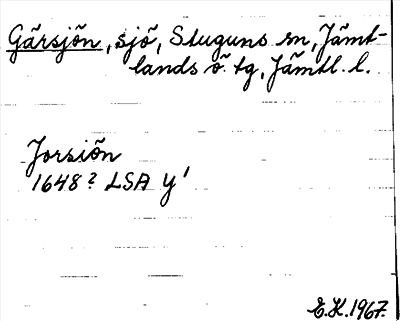 Gärsjön, sjö, Stuguns sn, Jämt-
lands ö. tg, Jämtl. l.
Jorsiön
1648? LSA Y¹
E.K. 1967.